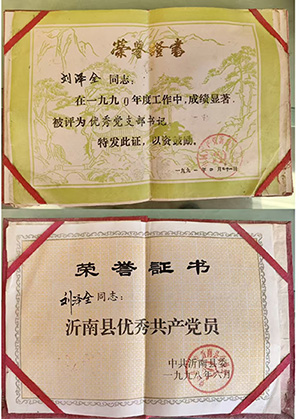 荣誉证书
刘泽全同志：
在一九九〇年度工作中，成绩显著
被评为优秀党支部书记
特发此证，以资鼓励。
荣誉证书
刘泽全同志：
沂南县优秀共产党员
中共沂南县委
一九九八年六月